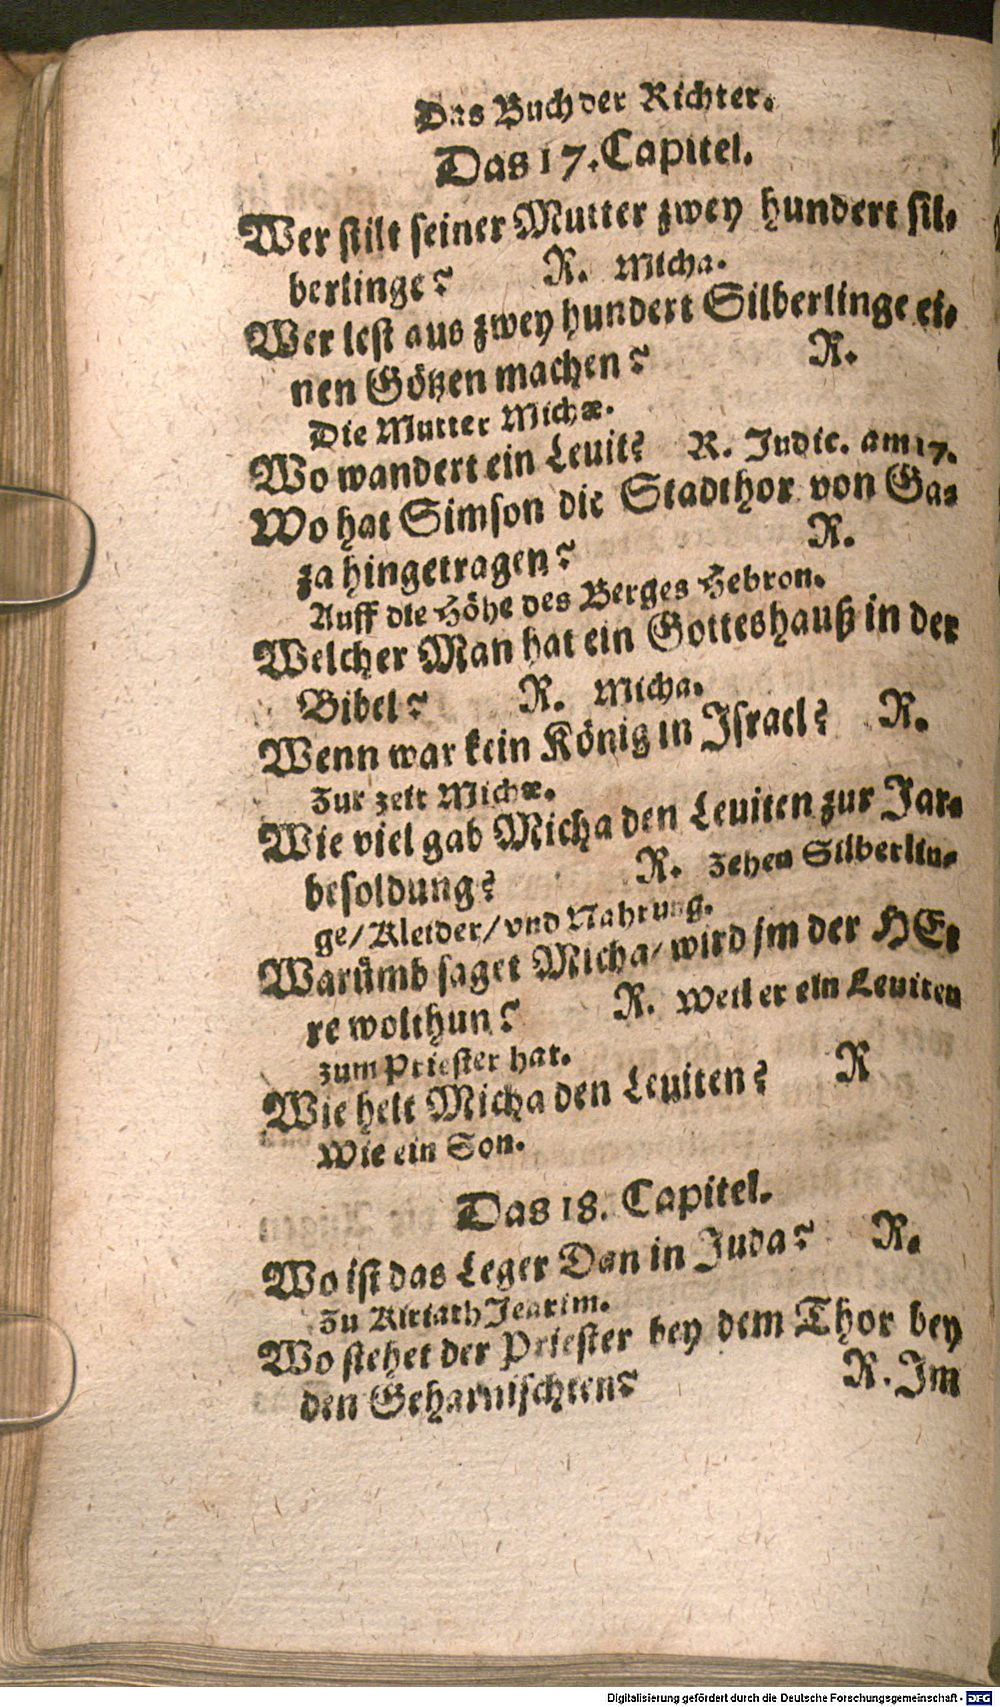 Das Buch der Richter.
Das 17. Capitel.
Wer stilt seiner Mutter zwey hundert sil-
berlinge? R. Micha.
Wer lest aus zwey hundert Silberlinge ei-
nen Götzen machen? R.
Die Mutter Michæ.
Wo wandert ein Leuit? R. Judic. am 17.
Wo hat Simson die Stadthor von Ga-
za hingetragen? R.
Auff die Höhe des Berges Hebron.
Welcher Man hat ein Gotteshauß in der
Bibel? R. Micha.
Wenn war kein König in Israel? R.
Zur zeit Michæ.
Wie viel gab Micha den Leuiten zur Jar-
besoldung? R. Zehen Silberlin-
ge/Kleider/vnd Nahrung.
Warümb saget Micha/wird jm der HEr
re wolthun? R. Weil er ein Leuiten
zum Priester hat.
Wie helt Micha den Leuiten? R
Wie ein Son.
Das 18. Capitel.
Wo ist das Leger Dan in Juda? R.
Zu Kiriath Jearim.
Wo stehet der Priester bey dem Thor bey
den Geharnischten? R. Im
Digitalisierung gefördert durch die Deutsche Forschungsgemeinschaft - DFG